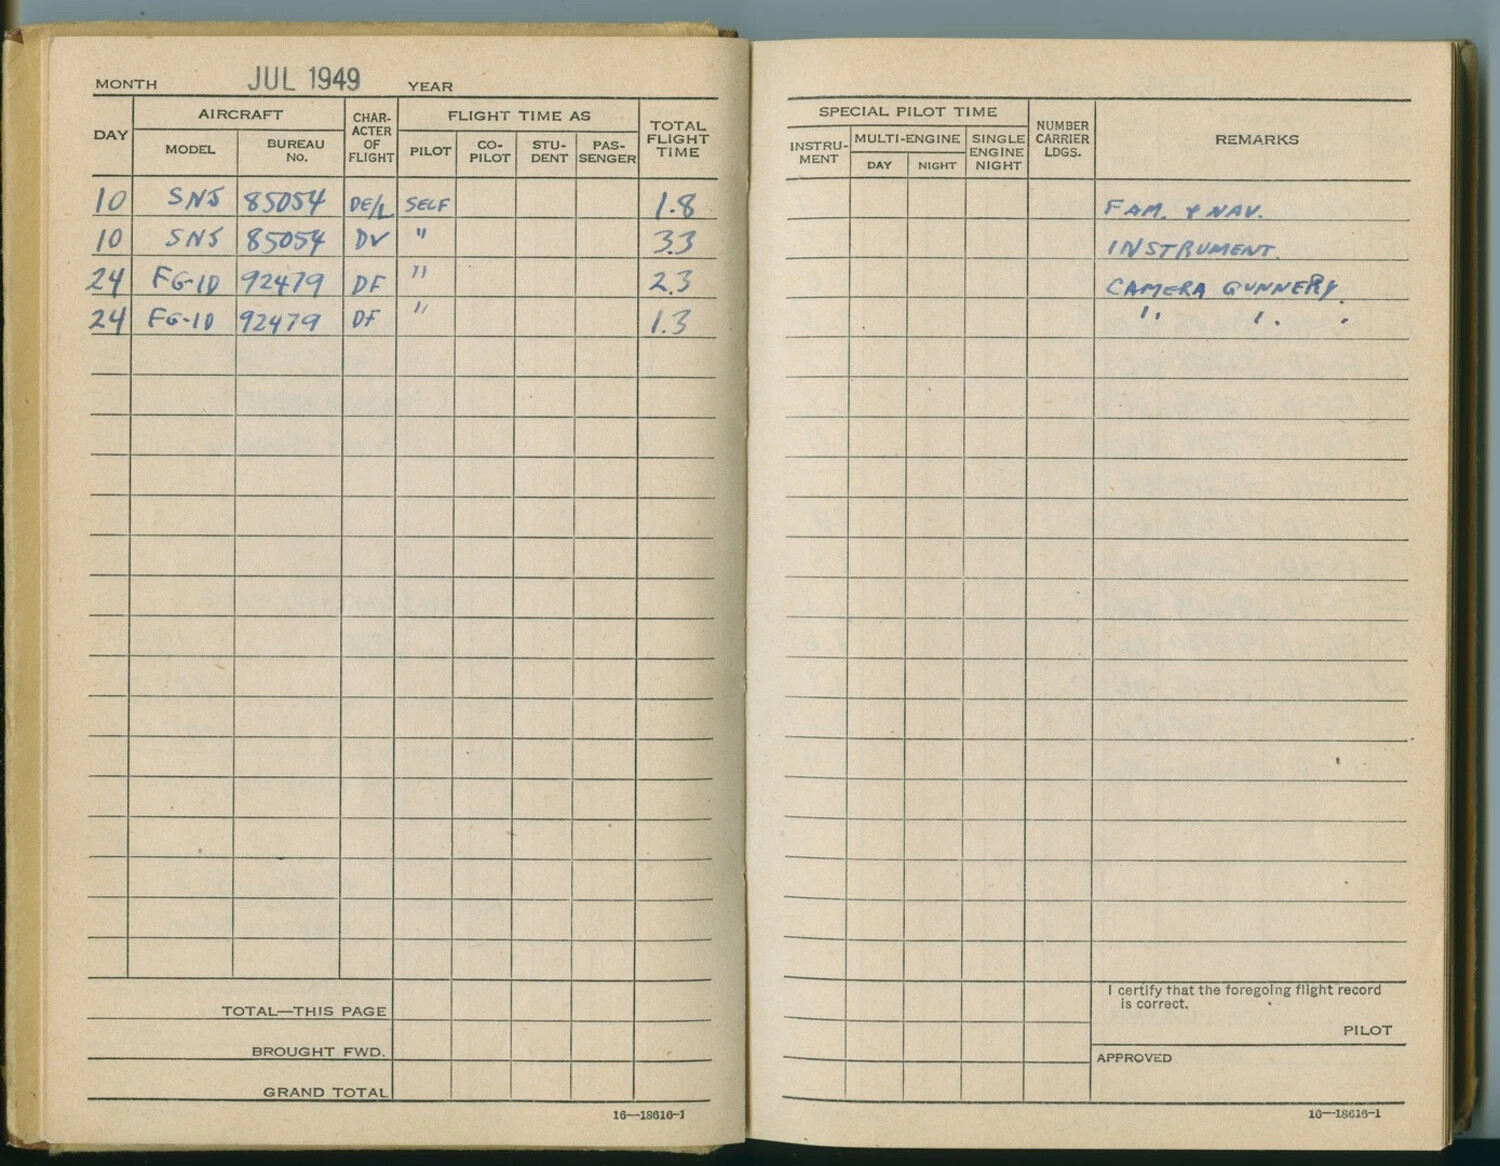 MONTH JUL 1949 YEAR
DAY AIRCRAFT CHAR- ACTER OF FLIGHT FLIGHT TIME AS TOTAL FLIGHT TIME
MODEL BUREAU NO. PILOT CO- PILOT STU- DENT PAS- SENGER
10 SNJ 85054 DE/L SELF 1.8
10 SNJ 85054 DV " 3.3
24 FG-1D 92479 DF " 2.3
24 FG-1D 92479 DF " 1.3
TOTAL—THIS PAGE
BROUGHT FWD.
GRAND TOTAL
16—18616-1
SPECIAL PILOT TIME NUMBER CARRIER LDGS. REMARKS
INSTRU- MENT MULTI-ENGINE SINGLE ENGINE NIGHT
DAY NIGHT
FAM. & NAV.
INSTRUMENT.
CAMERA GUNNERY.
" " "
I certify that the foregoing flight record
is correct.
PILOT
APPROVED
16—18616-1